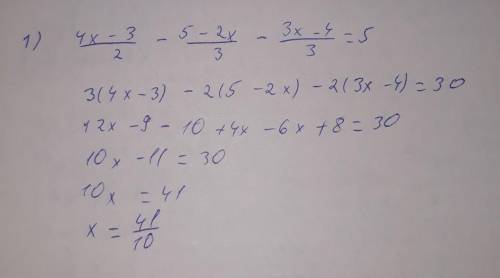 1) (4x-3)/2 - (5-2x)/3 - (3x-4)/3 = 5
3(4x-3) - 2(5-2x) - 2(3x-4) = 30
12x - 9 - 10 + 4x - 6x + 8 = 30
10x - 11 = 30
10x = 41
x = 41/10